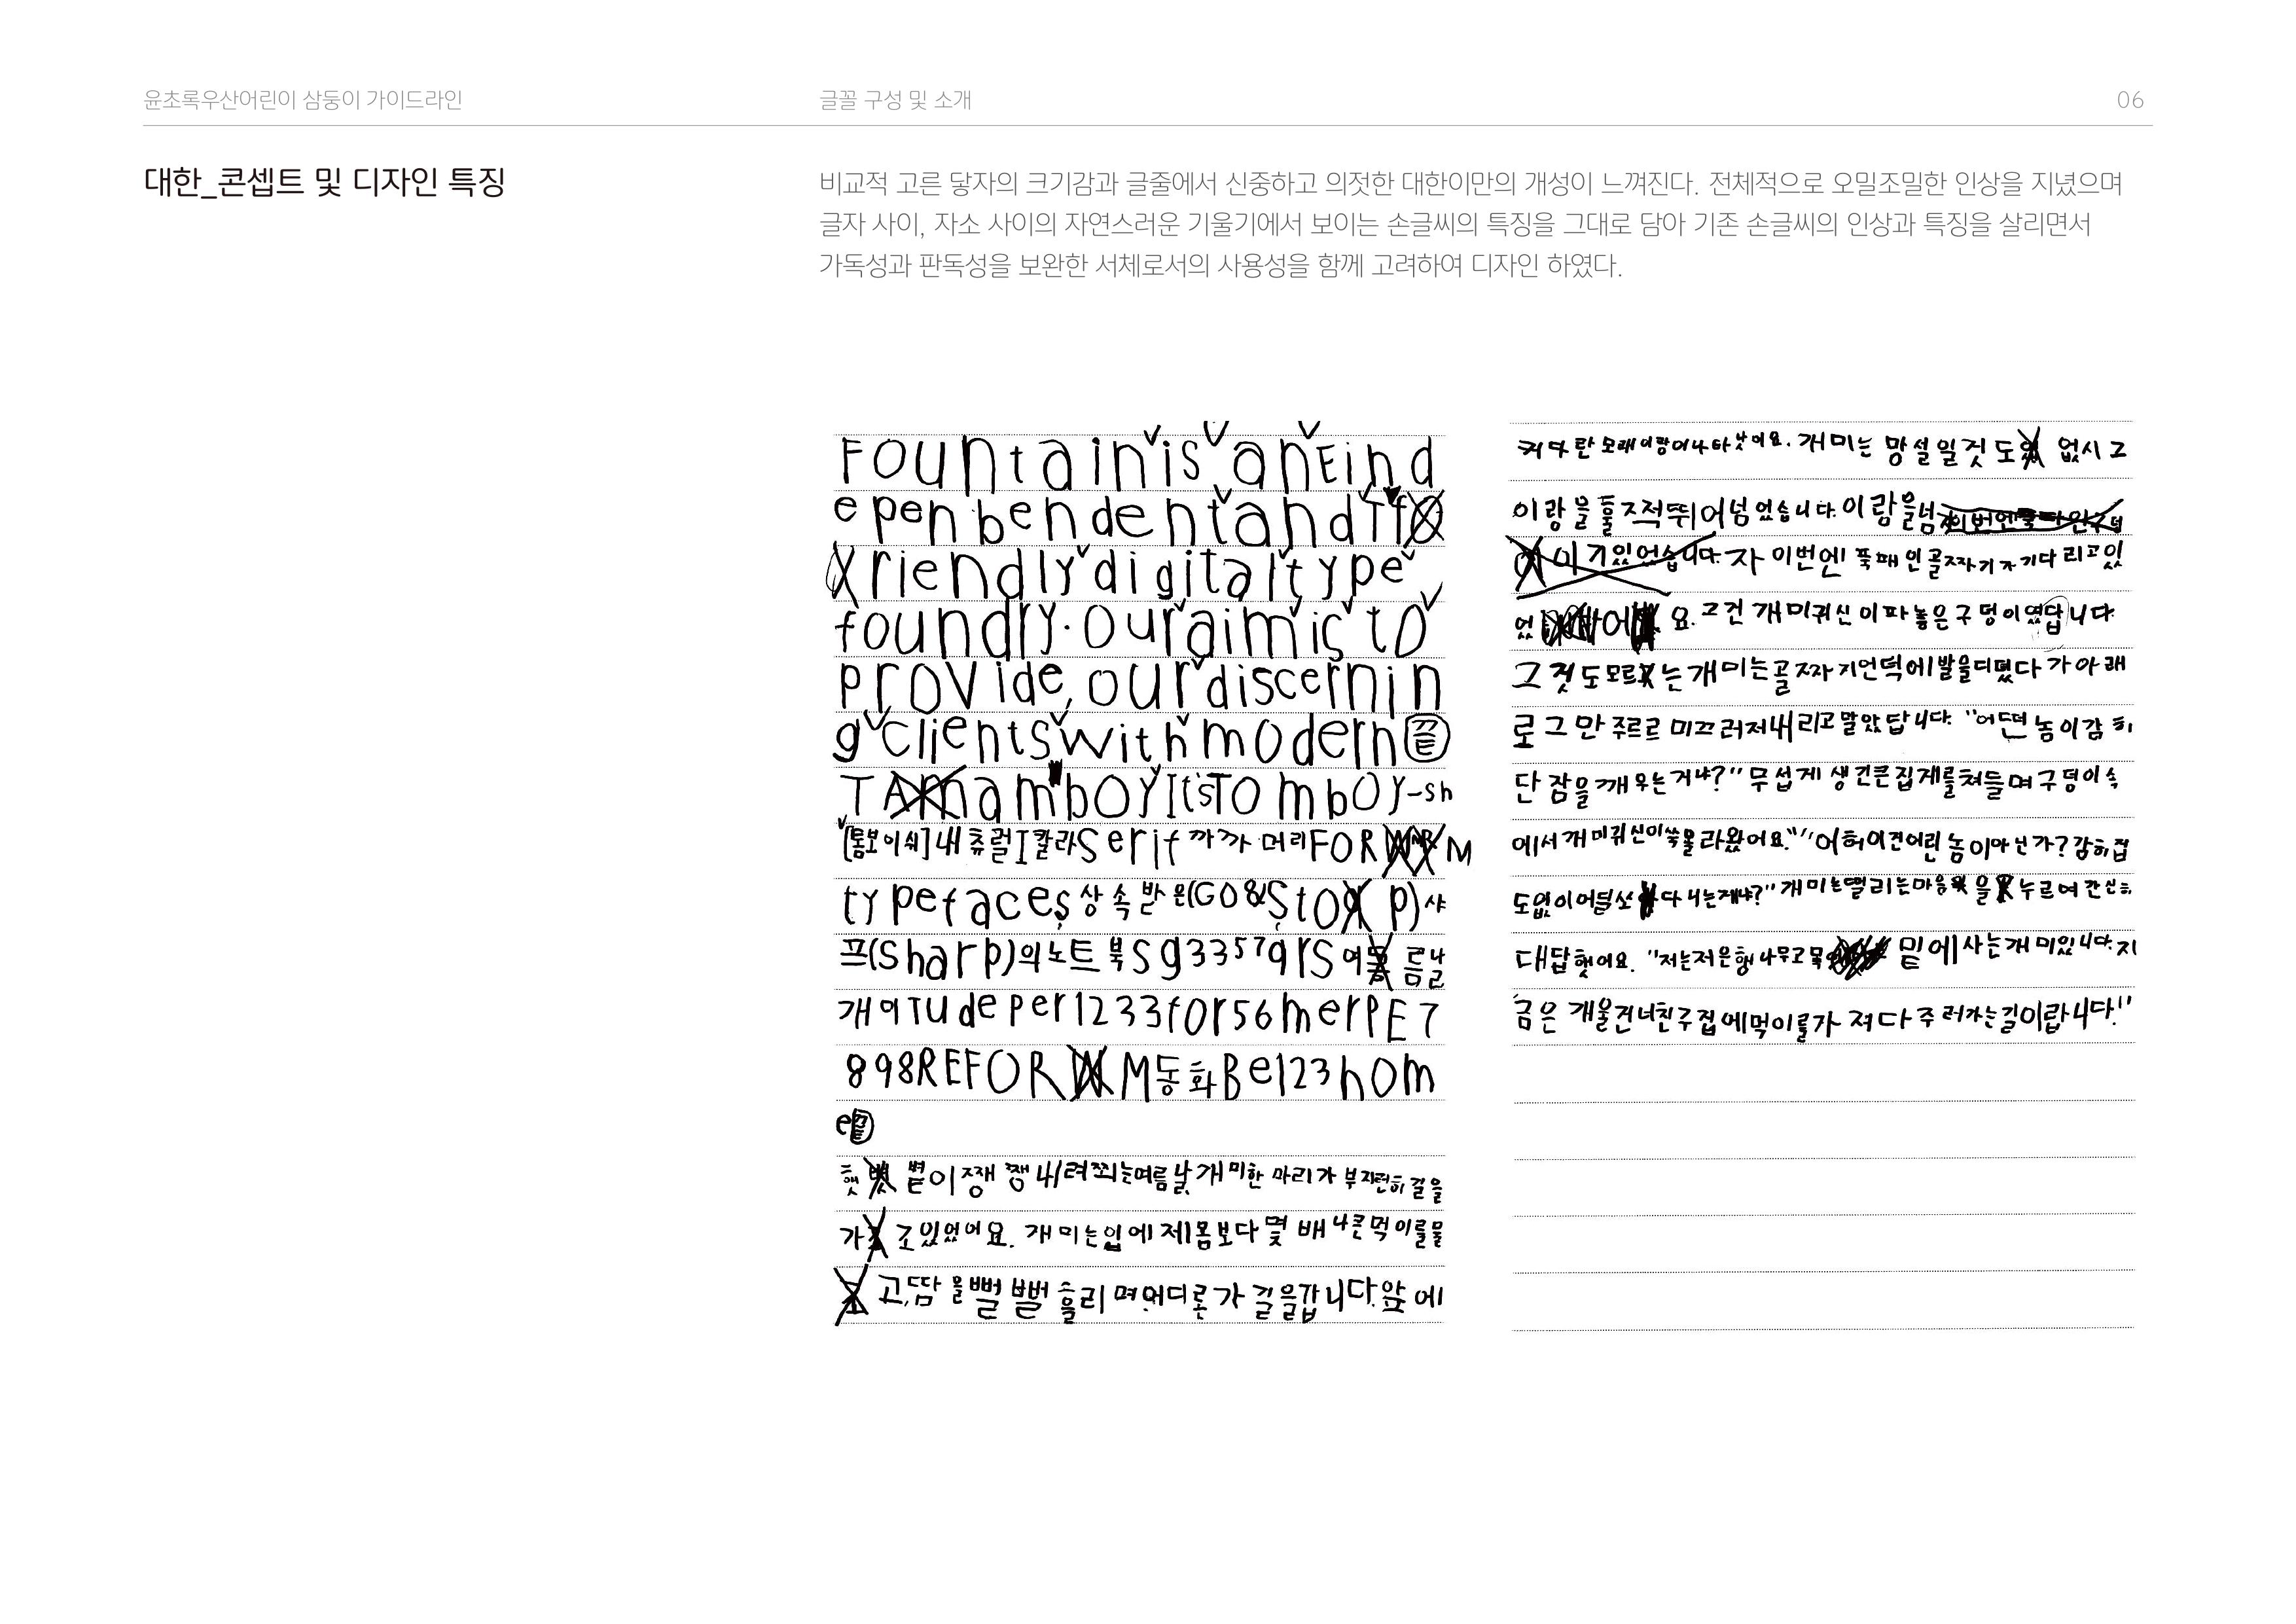 윤초록우산어린이 삼둥이 가이드라인
글꼴 구성 및 소개
06
대한_콘셉트 및 디자인 특징
비교적 고른 닿자의 크기감과 글줄에서 신중하고 의젓한 대한이만의 개성이 느껴진다. 전체적으로 오밀조밀한 인상을 지녔으며
글자 사이, 자소 사이의 자연스러운 기울기에서 보이는 손글씨의 특징을 그대로 담아 기존 손글씨의 인상과 특징을 살리면서
가독성과 판독성을 보완한 서체로서의 사용성을 함께 고려하여 디자인 하였다.
Fountain is an Eind
ependendent and Tf
riendly digital type
foundry. Our aim is to
provide, our discernin
g clients with modern 끝
T am boy It's Tomboy-sh
[톰보이쉬] 내츄럴 I 칼라 Serif 까까머리 FOR M
typefaces 상속받은 (GO & Stop) 샤
프(Sharp)의 노트북 Sg33579rs 여름날
개의 Tude per1233for56merPE7
898REFORM동화Be123hom
e끝
햇볕이 쨍쨍 내려쬐는 여름날 개미 한 마리가 부지런히 길을
가고 있었어요. 개미는 입에 제 몸보다 몇 배나 큰 먹이를 물
고, 땀을 뻘뻘 흘리며 어디론가 길을 갑니다. 앞에
커다란 모래이랑이 나타낫어요. 개미는 망설일것도 없시 그
이랑을 훌쩍 뛰어넘었습니다. 이랑을 넘
이기 있었습니다. 자 이번엔 푹패인 골짜기가 기다리고 있
었 어요. 그건 개미귀신이 파놓은 구덩이였답니다.
그것도 모르는 개미는 골짜지 언덕에 발을 디뎠다가 아래
로 그만 주르르 미끄러저 내리고 말았답니다. "어떤 놈이 감히
단잠을 깨우는거냐?" 무섭게 생긴 큰 집게를 쳐들며 구덩이 속
에서 개미귀신이 쑥 올라왔어요. "어허 이건 어린 놈이 아닌가? 감히 집
도없이 어딜 쏘다니는게냐?" 개미는 떨리는 마음을 누르며 간신히
대답했어요. "저는 저 은행나무 고목 밑에 사는 개미입니다. 지
금은 개울 건너 친구집에 먹이를 가져다 주러가는 길이랍니다."